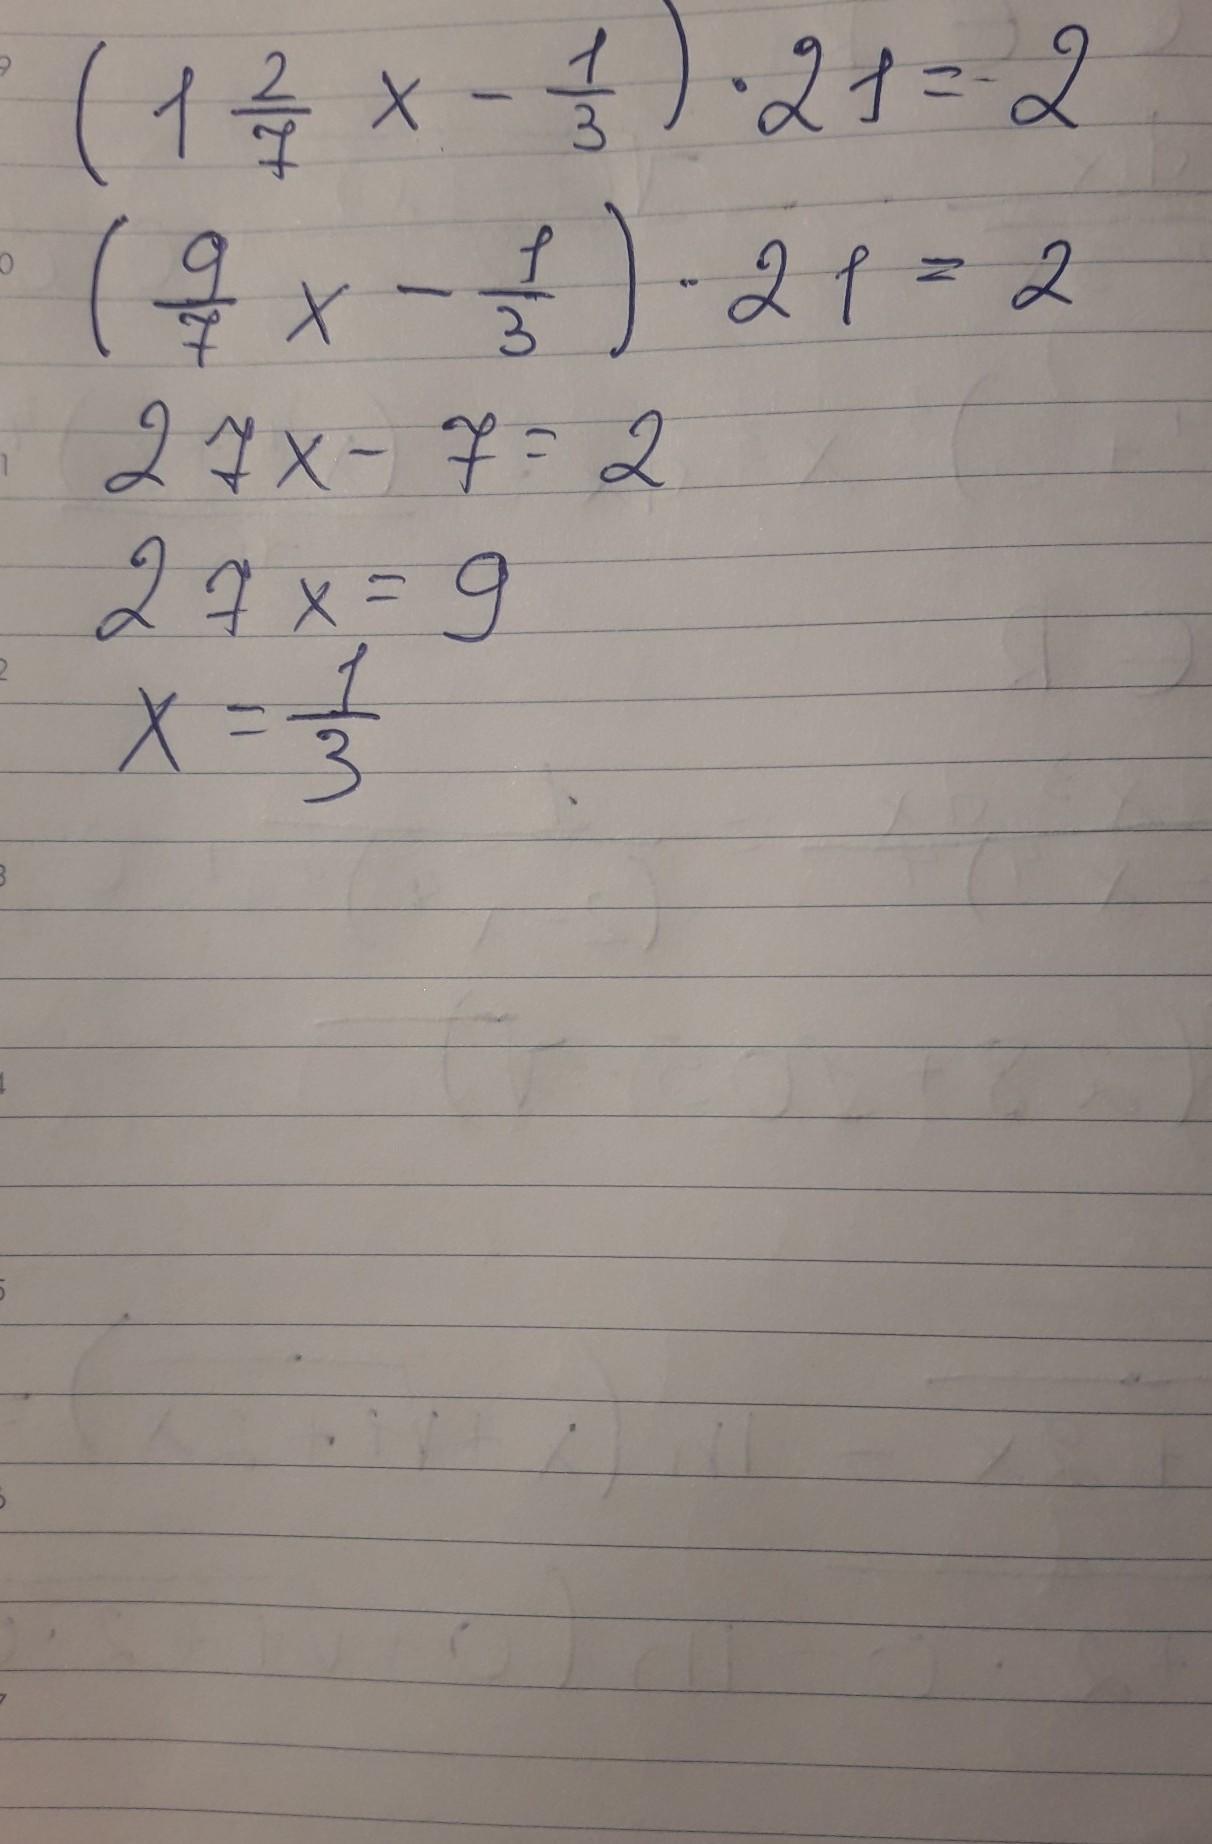 (1 2/7 x - 1/3) · 21 = 2
(9/7 x - 1/3) · 21 = 2
27x - 7 = 2
27x = 9
x = 1/3